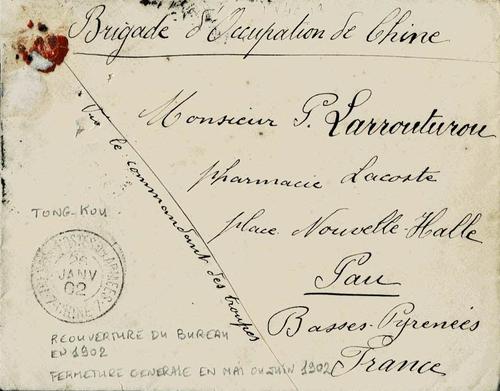 Brigade d'Occupation de Chine
Monsieur P. Larrouturou
pharmacie Lacoste
place Nouvelle-Halle
Pau
Basses-Pyrenées
France
Vu le commandant des troupes
TONG-KOU
POSTES
26
JANV
02
CHINE
REOUVERTURE DU BUREAU
EN 1902
FERMETURE GENERALE EN MAI OU JUIN 1902